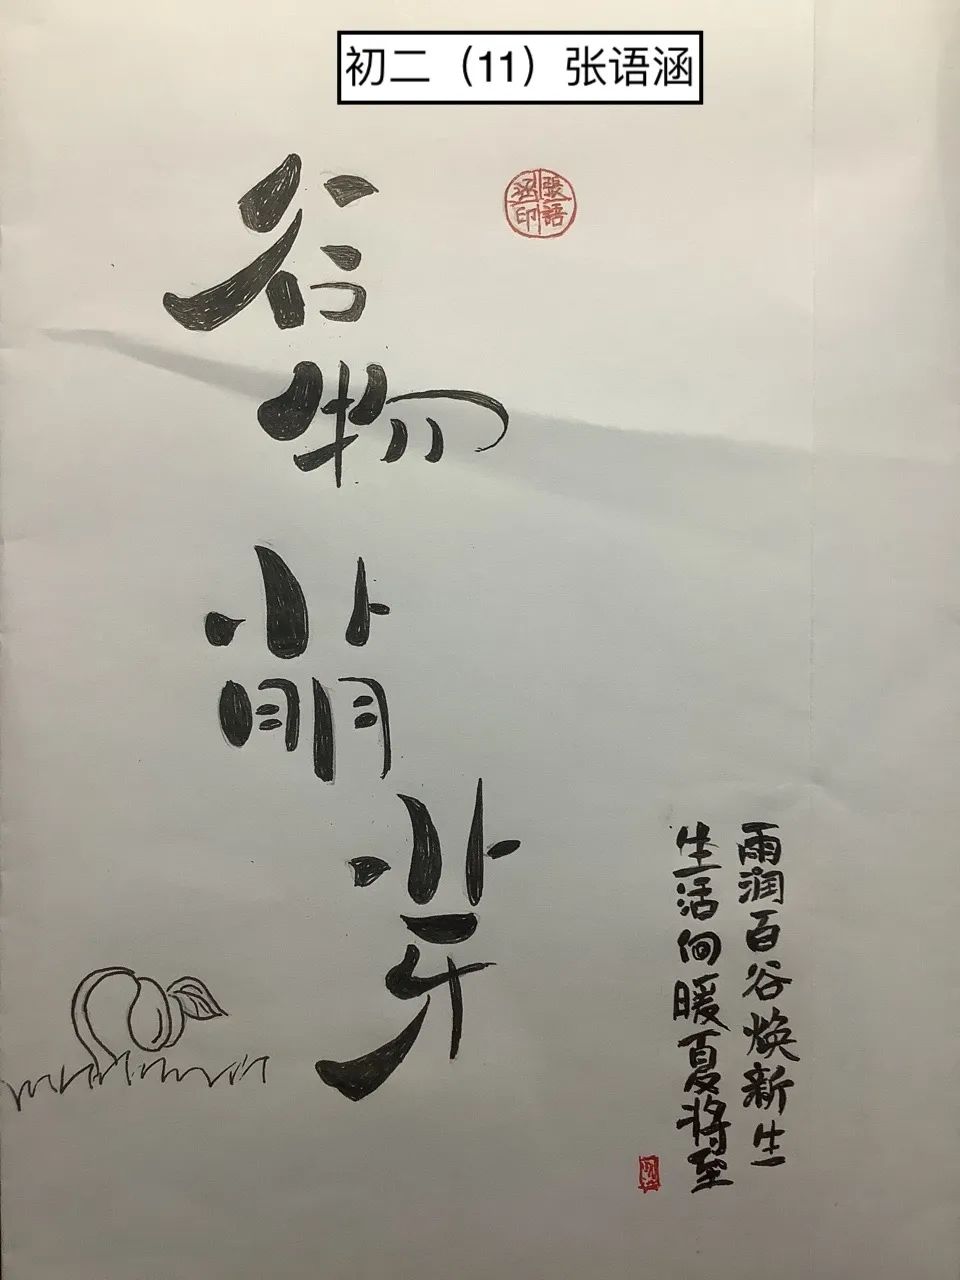 初二（11）张语涵
張語涵印
谷物萌芽
雨润百谷焕新生
生活向暖夏将至